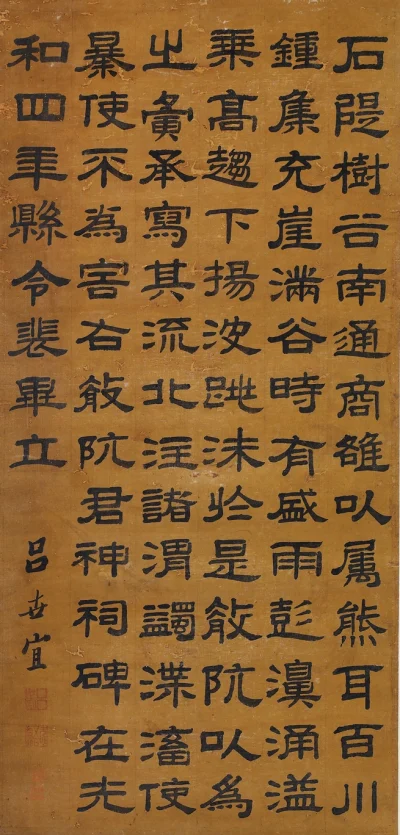 石隄樹谷南通商雒以属熊耳百川
鍾集充崖滿谷時有盛雨彭濞涌溢
乗高趨下揚波跳沫於是殽阬以為
之承寫其流北注諸渭蠲渫滀使
暴使不為害右殽阬君神祠碑在光
和四年縣令裴畢立
呂世宜